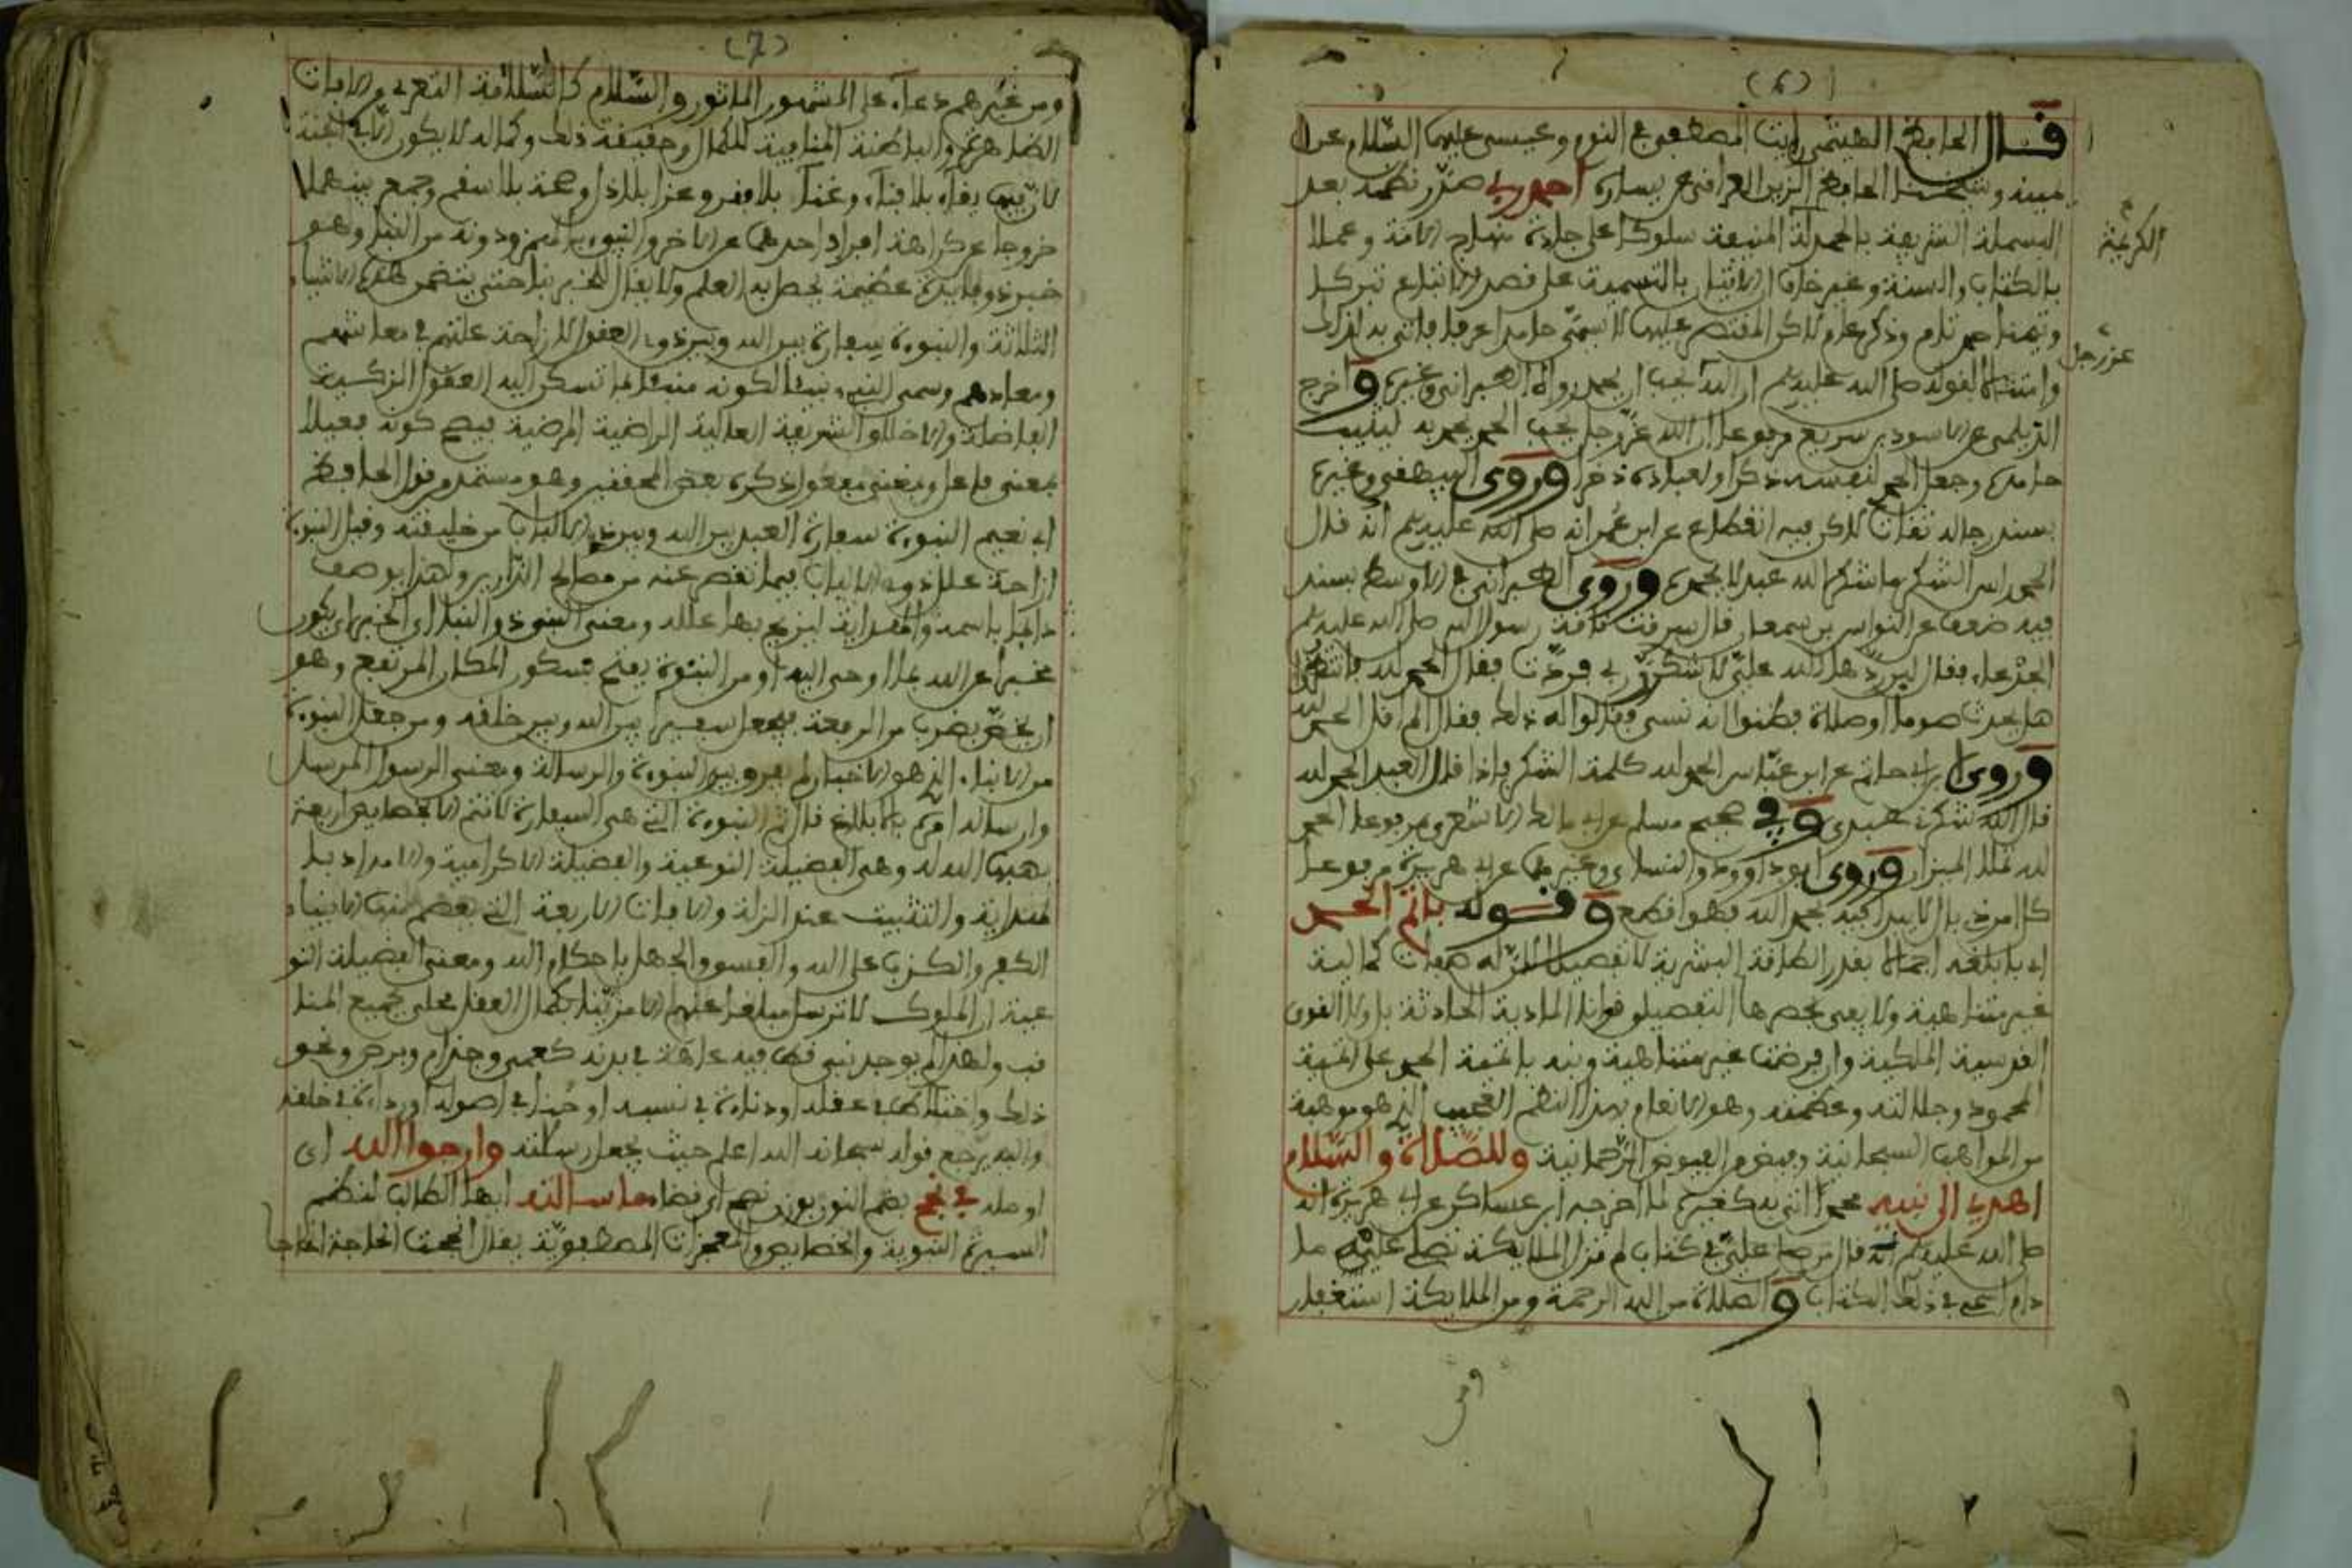 (6)
قال الحافظ الهيثمي رايت المصطفى في النوم وعيسى عليه السلام عن
يمينه وشيخنا الحافظ الزين العراقي عن يساره احمد ربي صدر نظمه بعد
البسملة الشريفة بالحمدلة المنيفة سلوكا على جادة منهاج الامة وعملا
الكريمة
بالكتاب والسنة وغير خاف ان الاتيان بالتسمية على قصد الاتباع تبركا
وتيمنا حمد تام وذكر عام لاكن المقتصر عليها لا يسمى حامدا عرفا فاتى به لذلك
عز وجل
وامتثالا لقوله صلى الله عليه وسلم ان الله يحب ان يحمد رواه الطبراني وغيره واخرج
الديلمي عن الاسود بن سريع مرفوعا ان الله عز وجل يحب الحمد يحمد به ليثيب
حامده وجعل الحمد لنفسه ذكرا ولعباده ذخرا وروى البيهقي وغيره
بسند رجاله ثقات لاكن فيه انقطاع عن ابن عمر انه صلى الله عليه وسلم انه قال
الحمد راس الشكر ما شكر الله عبد لا يحمده وروى الطبراني في الاوسط بسند
فيه ضعف عن النواس بن سمعان قال سرقت ناقة رسول الله صلى الله عليه وسلم
الجدعاء فقال لئن ردها الله علي لاشكرن ربي فردت فقال الحمد لله فانتظروا
هل يحدث صوما او صلاة فظنوا انه نسي فقالوا له ذلك فقال الم اقل الحمد لله
وروى ابن ابي حاتم عن ابن عباس الحمد لله كلمة الشكر فاذا قال العبد الحمد لله
قال الله شكرني عبدي وفي صحيح مسلم عن ابي مالك الاشعري مرفوعا الحمد
لله تملا الميزان وروى ابو داوود والنساءي وغيرهما عن ابي هريرة مرفوعا
كل امر ذي بال لا يبدا فيه بحمد الله فهو اقطع وقوله باتم الحمد
اي بابلغه اجمالا بقدر الطاقة البشرية لا تفصيلا اذ له صفات كمالية
غير متناهية ولا يفي بحصرها التفصيلي قوانا المادية الحادثة بل ولا القوى
القدسية الملكية وان فرضت غير متناهية ونبه باتمية الحمد على اتمية
المحمود وجلالته وعظمته وهو الانعام بهذا النظم العجيب الذي هو موهبة
من المواهب السبحانية وفيض من الفيوض الرحمانية وللصلاة والسلام
اهدي الى نبيه محمد اتى به كغيره لما اخرجه ابن عساكر عن ابي هريرة انه
صلى الله عليه وسلم انه قال من صلى علي في كتاب لم تزل الملايكة تصلي عليه ما
دام اسمي في ذلك الكتاب والصلاة من الله الرحمة ومن الملايكة استغفار
ومن
(7)
ومن غيرهم دعاء على المشهور الماثور والسلام كالسلامة التعري من الافات
الظاهرة والباطنة المنافية للكمال وحقيقة ذلك وكماله لا يكون الا في الجنة
لان فيها بقاء بلا فناء وغناء بلا فقر وعز بلا ذل وصحة بلا سقم وجمع بينهما
خروجا عن كراهة افراد احدهما عن الاخر والنبيء بالهمز ودونه من النبا وهو
خبر ذو فايدة عظيمة يحصل به العلم ولا يقال للخبر نبا حتى يتضمن هذه الاشياء
الثلاثة والنبوءة سفارة بين الله وبين ذوي العقول لازاحة عللهم في معاشهم
ومعادهم وسمي النبيء نبيئا لكونه منبئا بما تسكن اليه العقول الزكية
الفاضلة والاخلاق الشريفة العالية الراضية المرضية فيصح كونه فعيلا
بمعنى فاعل وبمعنى مفعول ذكره بعض المحققين وهو مستمد من قول الحافظ
ابي نعيم النبوءة سفارة العبد بين الله وبين ذوي الالباب من خليقته وقيل النبوءة
ازاحة علل ذوي الالباب فيما تقصر عنه من مصالح الدارين ولهذا يوصف
دايما بالحجة والهداية ليزيح بها عللهم ومعنى النبي ذو النبا اي الخبر اي يكون
مخبرا عن الله بما اوحى اليه او من النبوة بفتح فسكون المكان المرتفع وهو
ان يخص بضرب من الرفعة فيجعل سفيرا بين الله وبين خلقه ومن جعل النبوءة
من الانباء الذي هو الاخبار لم يفرق بين النبوءة والرسالة ومعنى الرسول المرسل
وارساله امره بالابلاغ قال ثم النبوءة التي هي السفارة لا تتم الا بخصايص اربعة
يهبها الله له وهي الفضيلة النوعية والفضيلة الاكرامية والامداد بالـ
هداية والتثبيت عند الزلة والافات الاربعة التي يعصم منها الانبياء
الكفر والكذب على الله والفسق والجهل باحكام الله ومعنى الفضيلة النو
عية ان الملوك لا ترسل مبلغا عنها الا من تناهى كمال العقل محلى بجميع المنا
قب ولهذا لم يوجد نبي قط فيه عاهة في بدنه كعمى وجذام وبرص ونحو
ذلك واختلاط في عقله او دناءة في نسبه او خزا في اصوله او رداءة في خلقه
واليه يرجع قوله سبحانه الله اعلم حيث يجعل رسالته وارجوا الله اي
اومله في نجح بضم النون بوزن نصح اي قضاء ما سالته ايها الطالب لنظم
السيرة النبوية والخصايص والمعجزات المصطفوية يقال انجحت الحاجة انجاحا